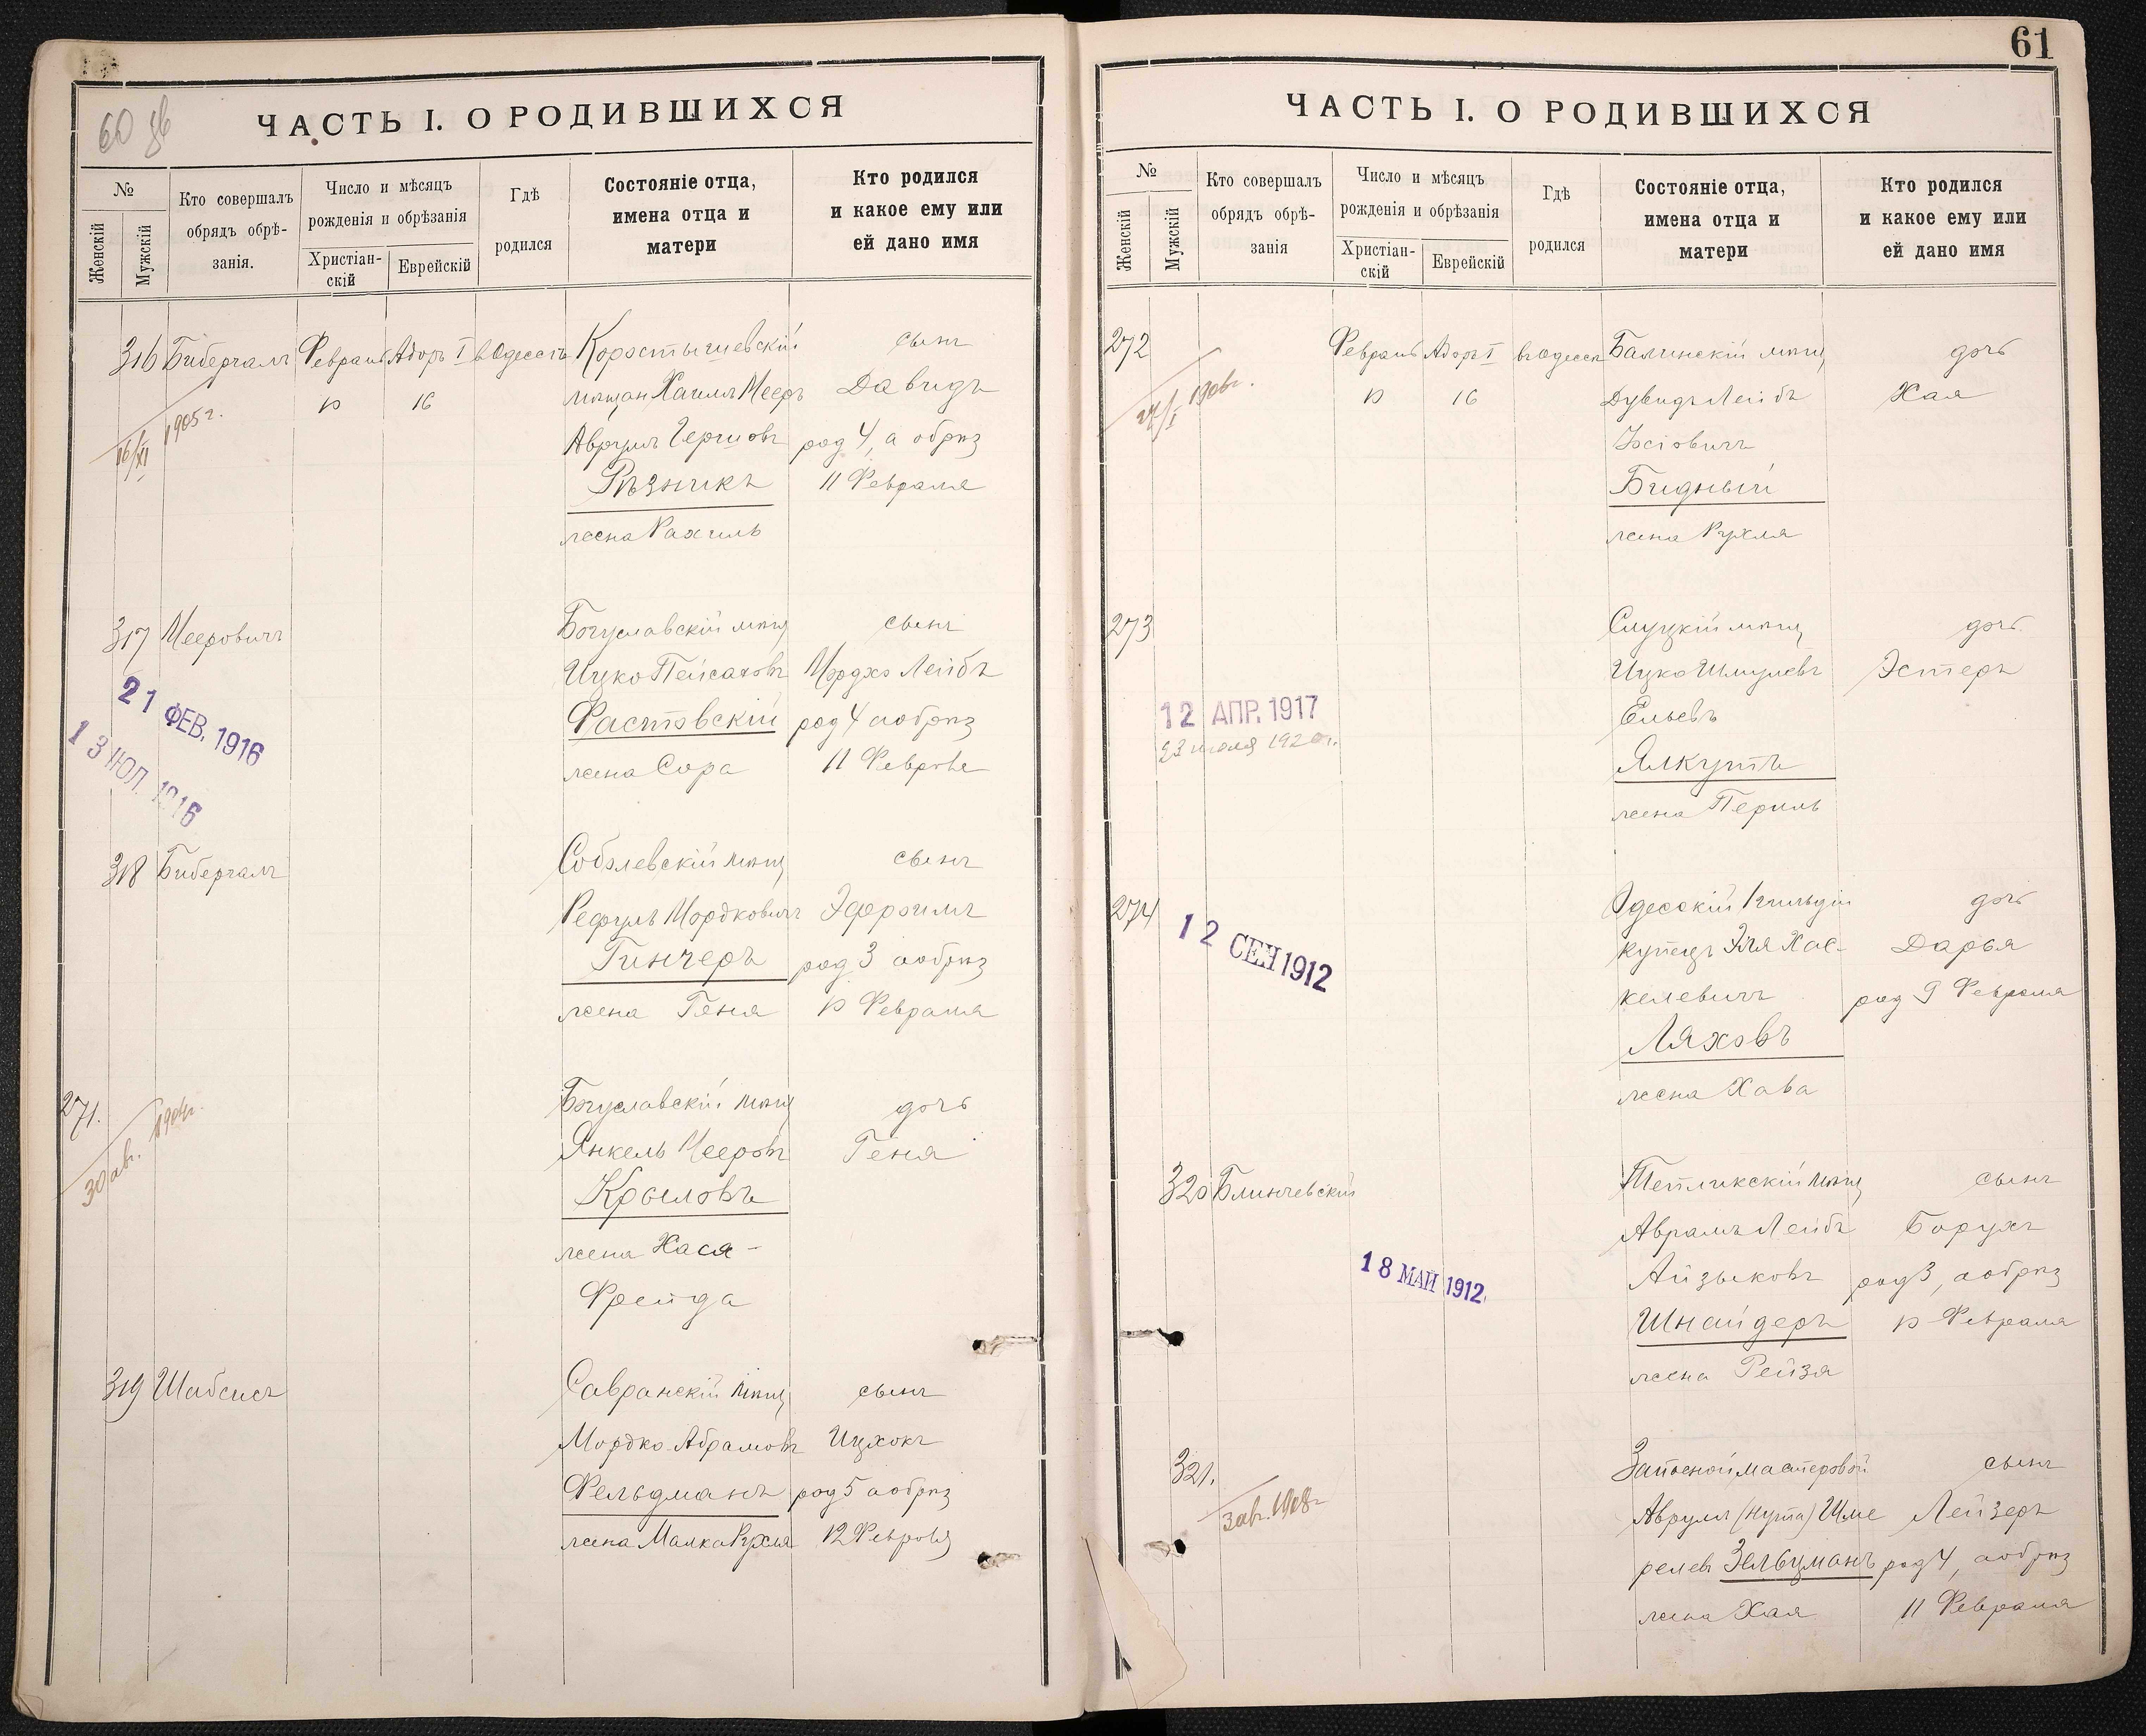 60 об
ЧАСТЬ I. О РОДИВШИХСЯ
№
Женскій
Мужскій
Кто совершалъ
обрядъ обрѣ-
занія.
Число и мѣсяцъ
рожденія и обрѣзанія
Христіан-
скій
Еврейскій
Гдѣ
родился
Состояніе отца,
имена отца и
матери
Кто родился
и какое ему или
ей дано имя
316 Бибергалъ Февраль Адоръ I в Одессѣ Коростышевскій сынъ
10 16 мѣщан Хаимъ Мееръ Давидъ
16/XI 1905 г.
Аврумъ Гершовъ род 4, а обрѣз
Рѣзникъ 11 Февраля
жена Рахиль
317 Мееровичъ Богуславскій мѣщ сынъ
Ицко Пейсаховъ Мордхо Лейбъ
21 ФЕВ. 1916
Фастовскій род 4 а обрѣз
13 ИЮЛ. 1916
жена Сора 11 Февраля
318 Бибергалъ Соболевскій мѣщ сынъ
Рефулъ Мордковичъ Эфроимъ
Гинчеръ род 3 а обрѣз
жена Геня 10 Февраля
271. Богуславскій мѣщ дочь
30 авг.
Янкель Мееровъ Геня
Крыловъ
жена Хася-
Фрейда
319 Шабсисъ Савранскій мѣщ сынъ
Мордко Абрамовъ Ицхокъ
Фельдманъ род 5 а обрѣз
жена Малка Рухля 12 Февраля
61
ЧАСТЬ I. О РОДИВШИХСЯ
№
Женскій
Мужскій
Кто совершалъ
обрядъ обрѣ-
занія
Число и мѣсяцъ
рожденія и обрѣзанія
Христіан-
скій
Еврейскій
Гдѣ
родился
Состояніе отца,
имена отца и
матери
Кто родился
и какое ему или
ей дано имя
272 Февраль Адоръ I в Одессѣ мѣщ дочь
10 16 Дувидъ Лейбъ Хая
1906г.
Іосіовичъ
Бидный
жена Рухля
273 Слуцкій мѣщ дочь
Ицко Шмулевъ Эстеръ
12 АПР. 1917
Ельевъ
Ялкутъ
жена Перль
274 Одесскій 1 гильдіи дочь
12 СЕН 1912
купецъ Элья Хас- Дарья
келевичъ род 9 Февраля
Ляховъ
жена Хава
320 Блинчевскій Тепликскій мѣщ сынъ
Аврамъ Лейбъ Борухъ
18 МАЙ 1912
Айзыковъ род 3, а обрѣз
Шнайдеръ 10 Февраля
жена Рейзя
321. Запасной мастеровой сынъ
3 авг. 1908г
Аврумъ (Нута) Шме Лейзеръ
релев Зельцманъ род 4, а обрѣз
жена Хая 11 Февраля